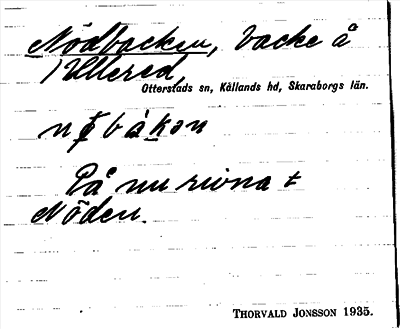 Nödbacken, backe å
Ullered,
Otterstads sn, Kållands hd, Skaraborgs län.
På nu rivna t
Nöden.
THORVALD JONSSON 1935.